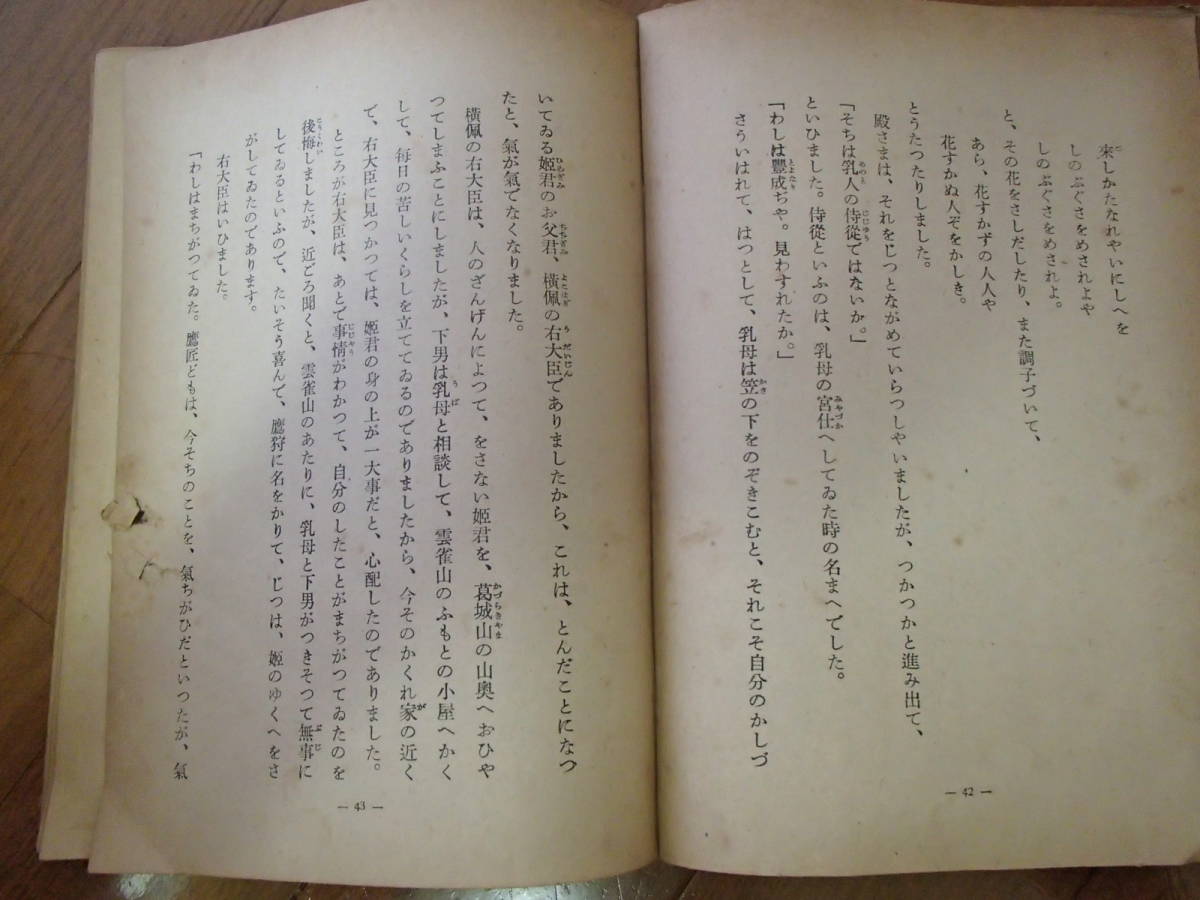 来しかたなれやいにしへを
しのぶぐさをめされよや
しのぶぐさをめされよ。
と、その花をさしだしたり、また調子づいて、
あら、花すかずの人人や
花すかぬ人ぞをかしき。
とうたつたりしました。
殿さまは、それをじつとながめていらつしやいましたが、つかつかと進み出て、
「そちは乳人の侍從ではないか。」
といひました。侍從といふのは、乳母の宮仕へしてゐた時の名まへでした。
「わしは豐成ぢや。見わすれたか。」
さういはれて、はつとして、乳母は笠の下をのぞきこむと、それこそ自分のかしづ
— 42 —
いてゐる姫君のお父君、横佩の右大臣でありましたから、これは、とんだことになつ
たと、氣が氣でなくなりました。
横佩の右大臣は、人のざんげんによつて、をさない姫君を、葛城山の山奥へおひや
つてしまふことにしましたが、下男は乳母と相談して、雲雀山のふもとの小屋へかく
して、毎日の苦しいくらしを立ててゐるのでありましたから、今そのかくれ家の近く
で、右大臣に見つかつては、姫君の身の上が一大事だと、心配したのでありました。
ところが右大臣は、あとで事情がわかつて、自分のしたことがまちがつてゐたのを
後悔しましたが、近ごろ聞くと、雲雀山のあたりに、乳母と下男がつきそつて無事に
してゐるといふので、たいそう喜んで、鷹狩に名をかりて、じつは、姫のゆくへをさ
がしてゐたのであります。
右大臣はいひました。
「わしはまちがつてゐた。鷹匠どもは、今そちのことを、氣ちがひだといつたが、氣
— 43 —